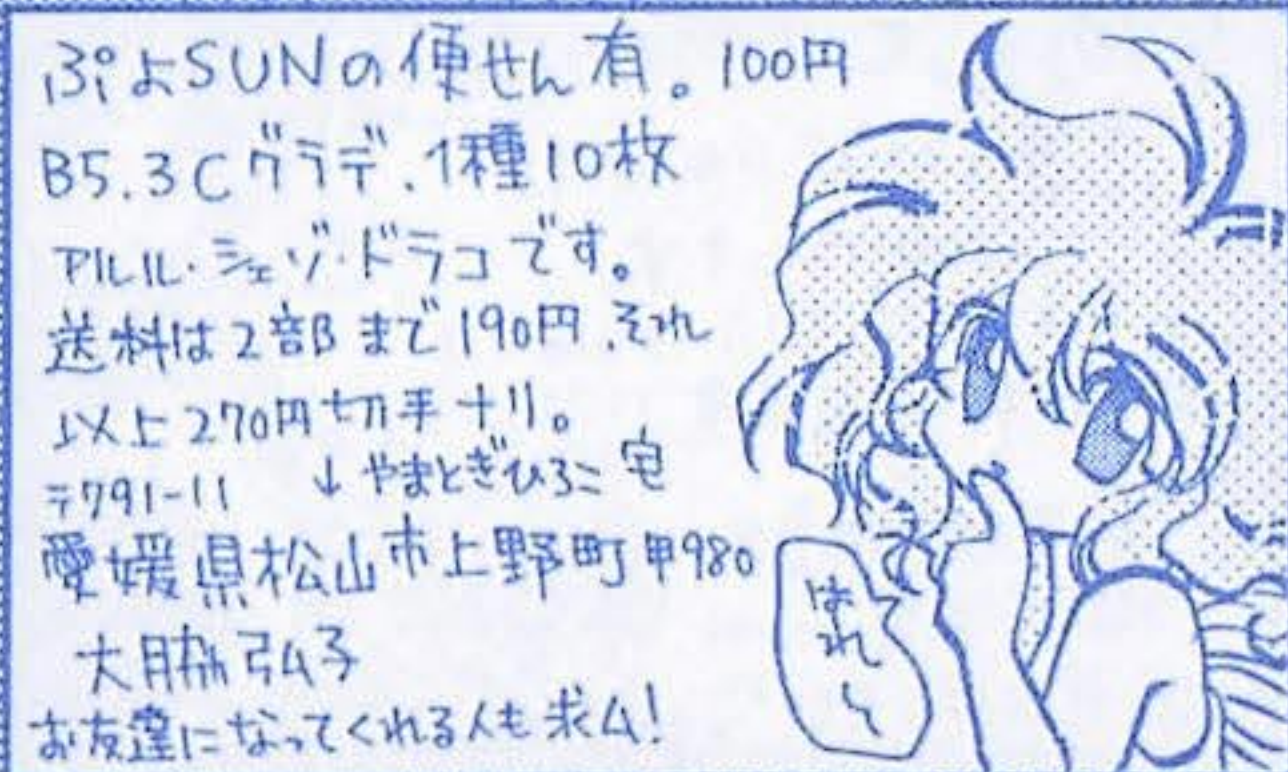 ぷよSUNの便せん有。100円
B5.3Cグラデ.1種10枚
アルル・シェゾ・ドラコです。
送料は2部まで190円.それ
以上270円切手ナリ。
〒791-11 ↓やまとぎひろこ宅
愛媛県松山市上野町甲980
大脇弘子
お友達になってくれる人も求ム!
はれ〜